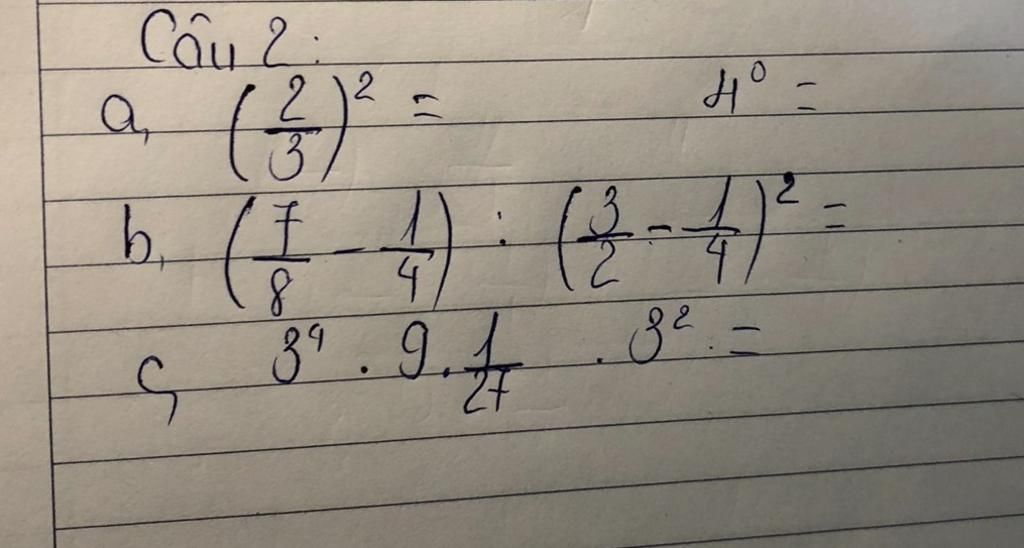 Câu 2:
a, (2/3)² = 4⁰ =
b, (7/8 - 1/4) : (3/2 - 1/4)² =
c, 3⁴ . 9 . 1/27 . 3² =